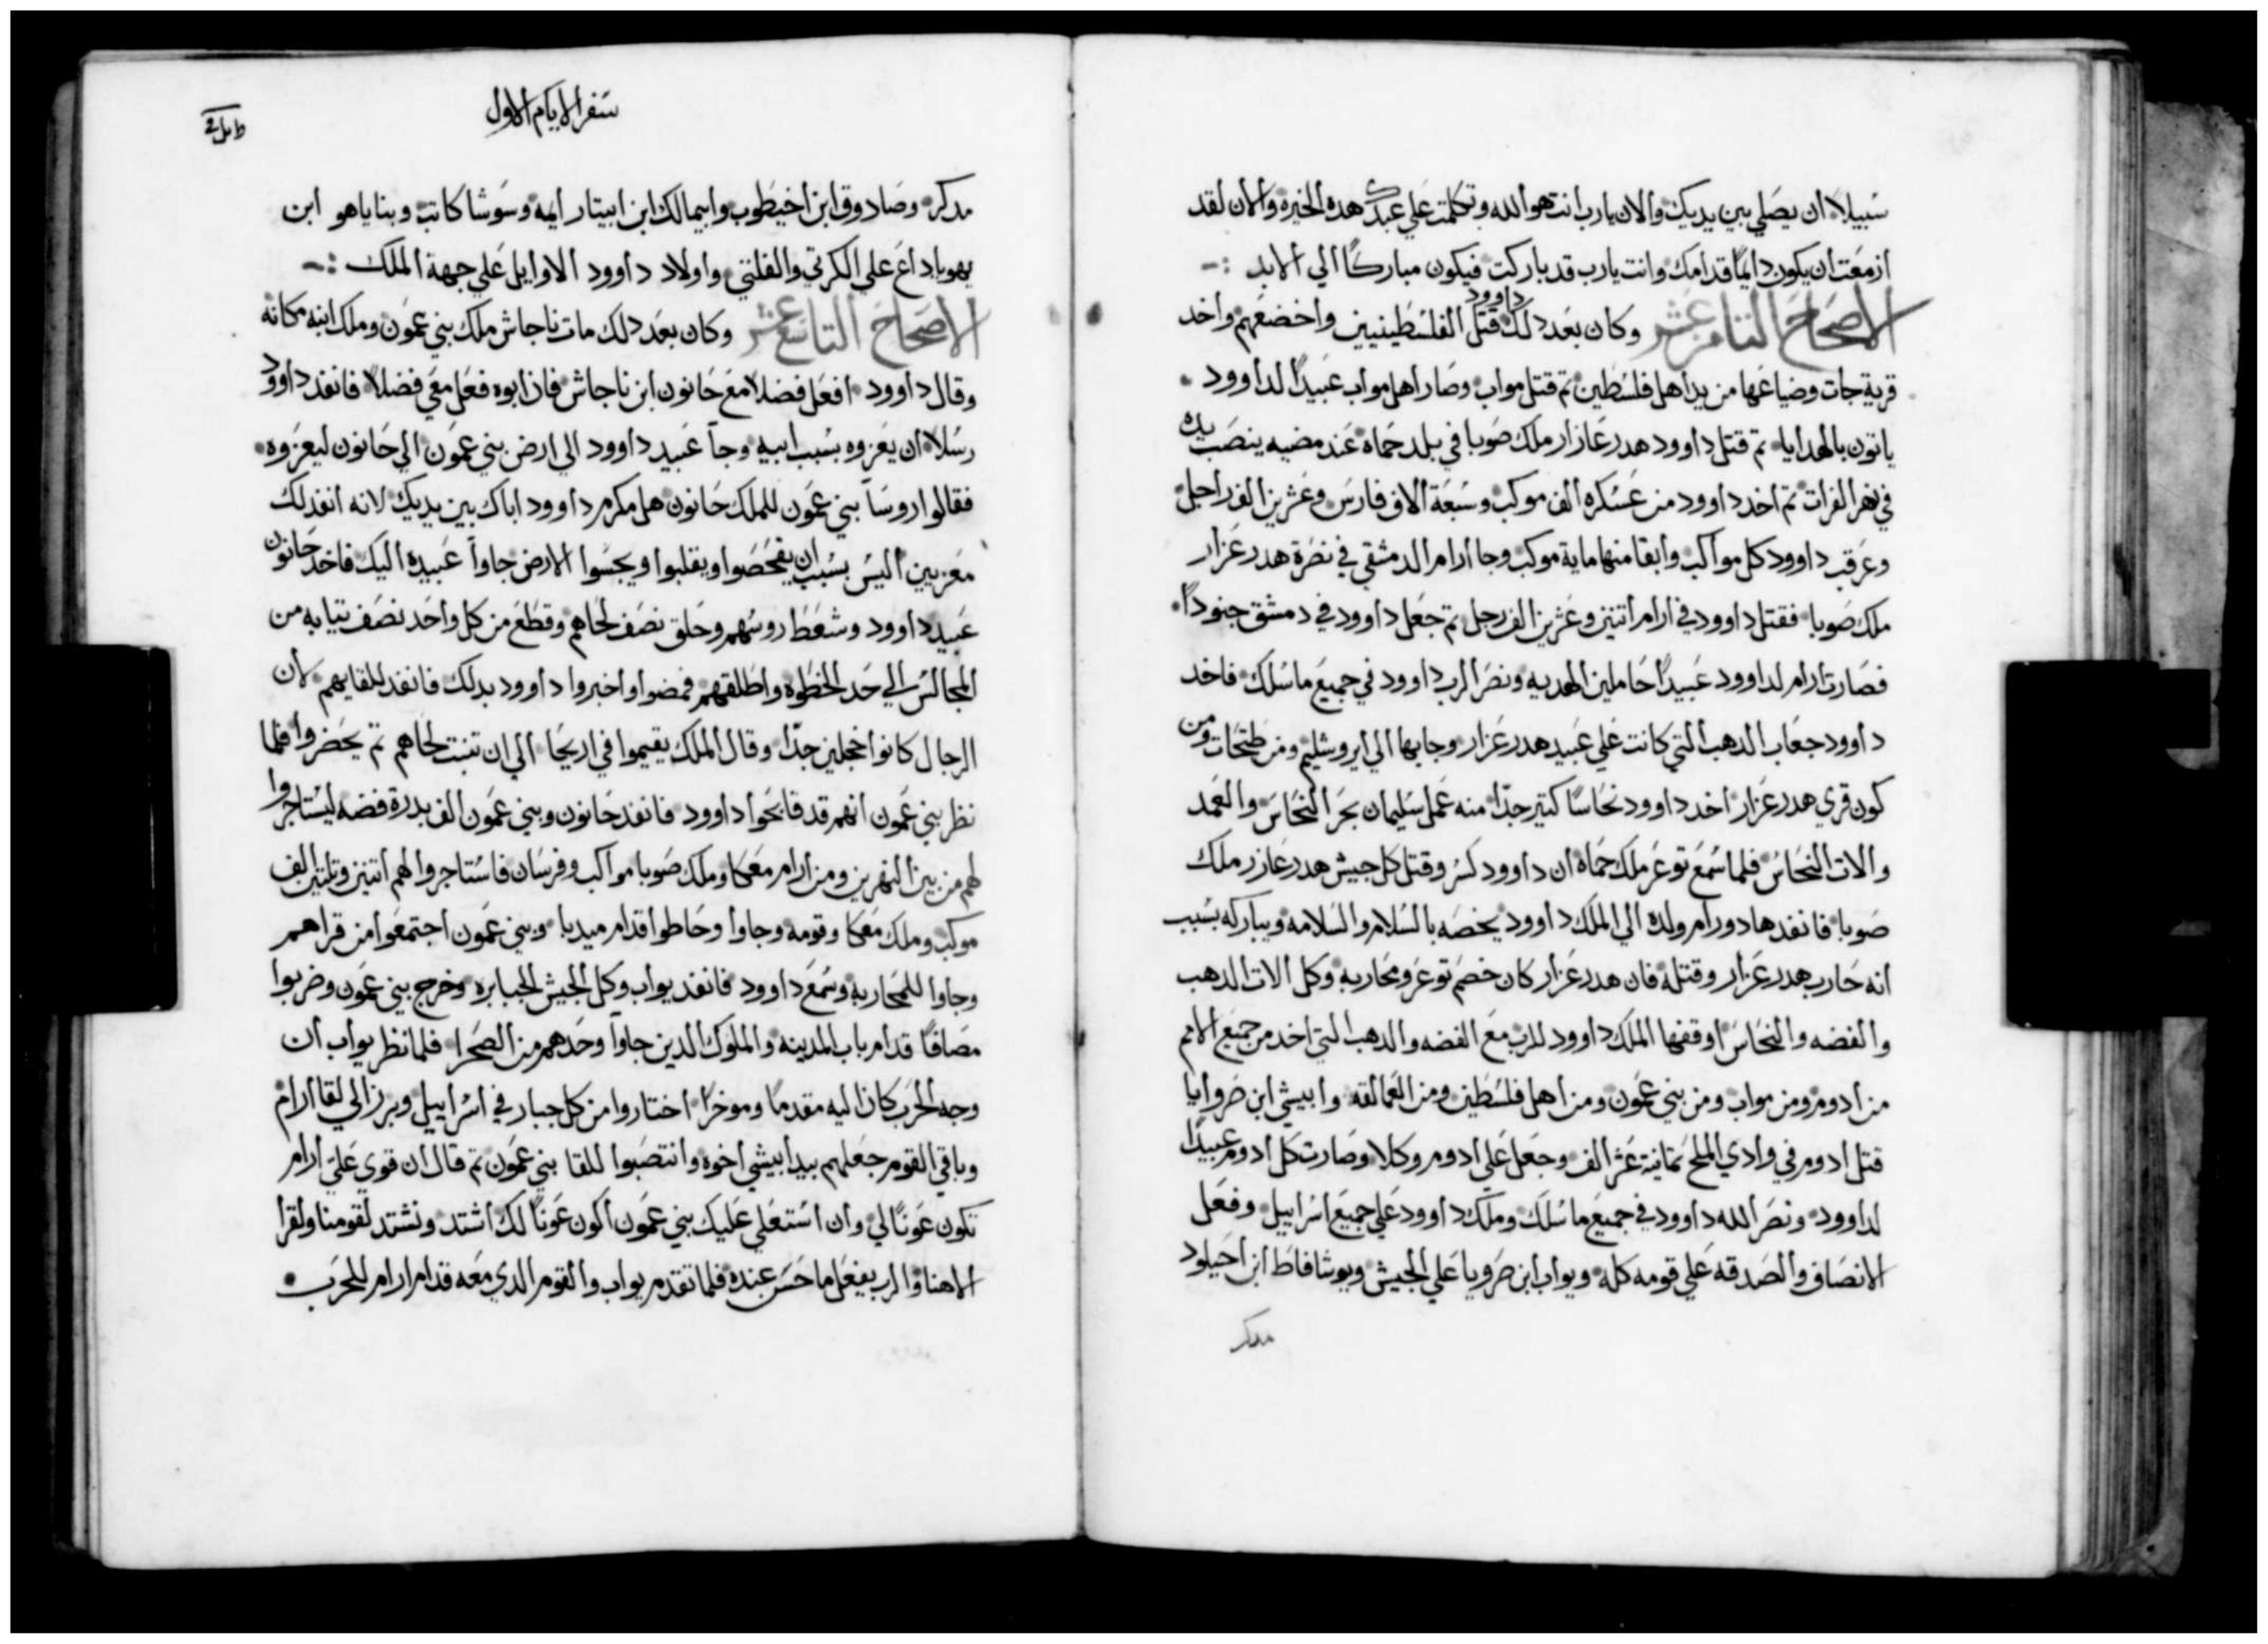 سبيلا ان يصلي بين يديك والان يارب انت هو الله وتكلمت علي عبدك هده الخيره والان لقد
ازمعت ان يكون دايمًا قدامك وانت يارب قد باركت فيكون مباركًا الي الابد :~
الاصحاح التامن عشر وكان بعد دلك قتل داوود الفلسطينيين واخضعهم واخد
قرية جات وضياعها من يد اهل فلسطين تم قتل مواب وصار اهل مواب عبيدًا لداوود
ياتون بالهدايا تم قتل داوود هدرعازار ملك صوبا في بلد حماه عند مضيه ينصب يده
في نهر الفرات تم اخد داوود من عسكره الف موكب وسبعة الاف فارس وعشرين الف راجل
وعرقب داوود كل مواكب وابقا منها ماية موكب وجا ارام الدمشقي في نصرة هدرعزار
ملك صوبا فقتل داوود في ارام اتنين وعشرين الف رجل تم جعل داوود في دمشق جنودًا
فصارت ارام لداوود عبيدًا حاملين الهديه ونصر الرب داوود في جميع ما سلك فاخد
داوود جعاب الدهب التي كانت علي عبيد هدرعزار وجابها الي ايروشليم ومن طبحات ومن
كون قري هدرعزار اخد داوود نحاسًا كتير جدًا منه عمل سليمان بحر النحاس والعمد
والات النحاس فلما سمع توعر ملك حماه ان داوود كسر وقتل كل جيش هدرعازر ملك
صوبا فانفد هادورام ولده الي الملك داوود يخصه بالسلام والسلامه ويباركه بسبب
انه حارب هدرعزار وقتله فان هدرعزار كان خصم توعر ومحاربه وكل الات الدهب
والفضه والنحاس اوقفها الملك داوود للرب مع الفضه والدهب التي اخد من جميع الامم
من ادوم ومن مواب ومن بني عمون ومن اهل فلسطين ومن العمالقه وابيشي ابن صروايا
قتل ادوم في وادي الملح تمانية عشر الف وجعل علي ادوم وكلا وصارت كل ادوم عبيدًا
لداوود ونصر الله داوود في جميع ما سلك وملك داوود علي جميع اسراييل وفعل
الانصاف والصدقه علي قومه كله ويواب ابن صرويا علي الجيش ويوشافاط ابن احيلود
مدكر
سفر الايام الاول
مدكر وصادوق ابن اخيطوب وابيمالك ابن ابيتار ايمه وسوشا كاتب وبناياهو ابن
يهوياداع علي الكرتي والفلتي واولاد داوود الاوايل علي جهة الملك :~
الاصحاح التاسع عشر وكان بعد دلك مات ناحاش ملك بني عمون وملك ابنه مكانه
وقال داوود افعل فضلا مع حانون ابن ناحاش فان ابوه فعل معي فضلا فانفد داوود
رسلا ان يعزوه بسبب ابيه وجا عبيد داوود الي ارض بني عمون الي حانون ليعزوه
فقالوا روسا بني عمون للملك حانون هل مكرم داوود اباك بين يديك لانه انفد لك
معزيين اليس بسبب ان يفحصوا ويقلبوا ويجسوا الارض جاوا عبيده اليك فاخد حانون
عبيد داوود وشعط روسهم وحلق نصف لحاهم وقطع من كل واحد نصف تيابه من
المجالس الي حد الخطوه واطلقهم فمضوا واخبروا داوود بدلك فانفد للقايهم لان
الرجال كانوا خجلين جدًا وقال الملك يقيموا في اريحا الي ان تنبت لحاهم تم يحضروا فلما
نظر بني عمون انهم قد قابحوا داوود فانفد حانون وبني عمون الف بدرة فضه ليستاجروا
لهم من بين النهرين ومن ارام معكا وملك صوبا مواكب وفرسان فاستاجروا لهم اتنين وتلتين الف
موكب وملك معكا وقومه وجاوا وحاطوا قدام ميدبا وبني عمون اجتمعوا من قراهم
وجاوا للمحاربه وسمع داوود فانفد يواب وكل الجيش الجبابره وخرج بني عمون وضربوا
مصافًا قدام باب المدينه والملوك الدين جاوا وحدهم من الصحرا فلما نظر يواب ان
وجه الحرب كان اليه مقدمًا وموخرًا اختاروا من كل جبار في اسراييل وبرز الي لقا ارام
وباقي القوم جعلهم بيد ابيشي اخوه وانتصبوا للقا بني عمون تم قال ان قوي علي ارام
تكون عونًا لي وان استعلي عليك بني عمون اكون عونًا لك اشتد ونشتد لقومنا ولقرا
الاهنا والرب يفعل ما حسن عنده فلما تقدم يواب والقوم الدي معه قدام ارام للحرب